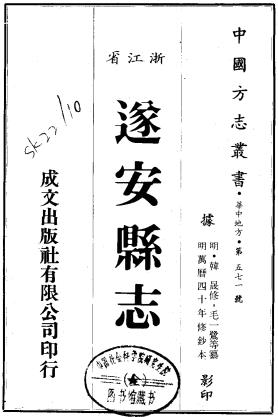 中國方志叢書·華中地方·第五七一號
據明·韓晟修·毛一鷺等纂
明萬曆四十年修鈔本
影印
浙江省
遂安縣志
sk22/10
成文出版社有限公司印行
图书馆藏书